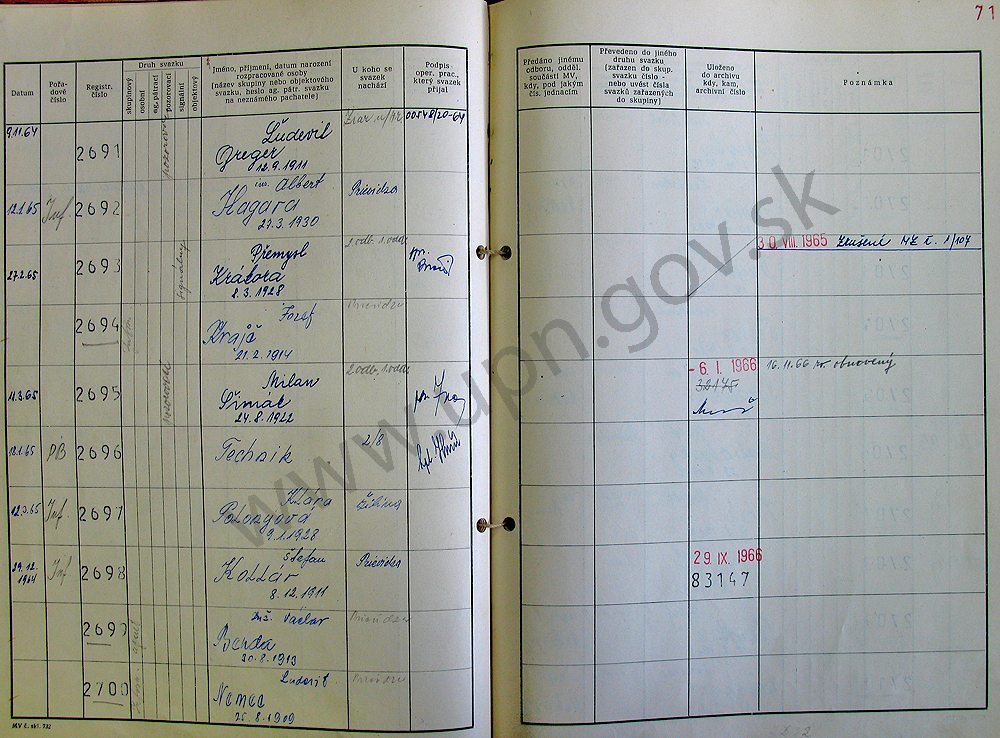 71
Datum
Pořa-
dové
číslo
Registr.
číslo
Druh svazku
skupinový
osobní
ag. pátrací
pozorovací
signální
objektový
Jméno, příjmení, datum narození
rozpracované osoby
(název skupiny nebo objektového
svazku, heslo ag. pátr. svazku
na neznámého pachatele)
U koho se
svazek
nachází
Podpis
oper. prac.,
který svazek
přijal
Předáno jinému
odboru, odděl.
součásti MV,
kdy, pod jakým
čís. jednacím
Převedeno do jiného
druhu svazku
(zařazen do skup.
svazku číslo -
nebo uvést čísla
svazků zařazených
do skupiny)
Uloženo
do archivu
kdy, kam,
archivní číslo
Poznámka
9.11.64
2691
Ľudevil
Greger
12.9.1911
00548/20-64
12.1.65
Inf
2692
ing. Albert
Hagara
27.3.1930
Prievidza
27.2.65
2693
signálny
Přemysl
Krátora
8.3.1928
1 odb. 1. odd.
30. VIII. 1965
Zrušené MZ č. 1/104
2694
Jozef
Krajč
21.2.1914
Prievidza
11.3.65
2695
Milan
Šimák
24.8.1922
2 odb. 1. odd.
- 6. I. 1966
32175
16.11.66 zv. obnovený
18.1.65
PB
2696
Technik
2/8
12.3.65
Inf
2697
Klára
9.1.1928
Žilina
29.12.
1964
Inf
2698
Štefan
Kollár
8.12.1911
Prievidza
29. IX. 1966
83147
2699
Inž. Václav
Benda
30.8.1913
Prievidza
2700
Ľudovít
Nemec
25.8.1909
Prievidza
MV č. skl. 732
www.upn.gov.sk